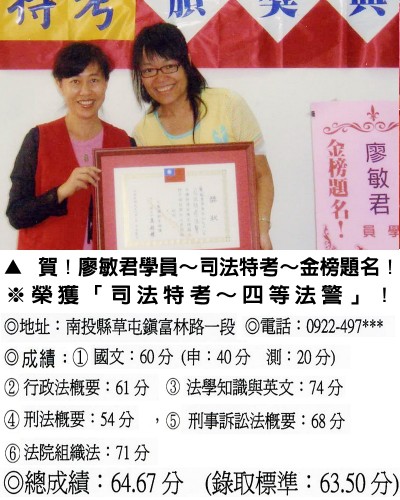 特考 頒獎典
獎狀
金榜題名！
廖敏君
學員
▲ 賀！廖敏君學員～司法特考～金榜題名！
※榮獲「司法特考～四等法警」！
◎地址：南投縣草屯鎮富林路一段 ◎電話：0922-497***
◎成績：① 國文：60分 (申：40分 測：20分)
② 行政法概要：61分 ③ 法學知識與英文：74分
④ 刑法概要：54分 ，⑤ 刑事訴訟法概要：68分
⑥ 法院組織法：71分
◎總成績：64.67分 (錄取標準：63.50分)